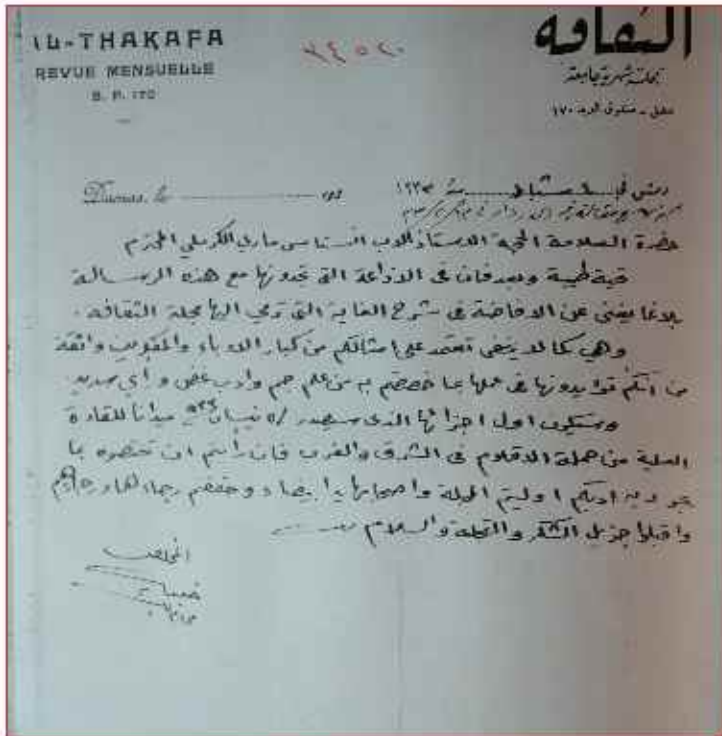 IL-THAKAFA
REVUE MENSUELLE
B. P. 170
الثقافة
مجلة شهرية جامعة
دمشق - صندوق البريد ١٧٠
٣٤٥٢٠
Damas, le 193
دمشق في شباط سنة ١٩٣٣
حضرة العلامة الحجة الاستاذ الاب انستاس ماري الكرملي المحترم
تحية طيبة وبعد فان في الاذاعة التي تجدونها مع هذه الرسالة
بلاغا يغني عن الافاضة في شرح الغاية التي ترمي اليها مجلة الثقافة .
وهي كما لا يخفى تعتمد على امثالكم من كبار الادباء والمفكرين واثقة
من انكم تؤيدونها في عملها بما خصصتم به من علم جم وادب غض ورأي سديد
وستكون اول اجزائها الذي سيصدر في ٥ نيسان ميدانا للقادة
العلية من حملة الاقلام في الشرق والغرب فان رأيتم ان تخصوه بما
يجود به ادبكم اوليتم المجلة واصحابها يدا بيضاء وحققتم رجاءها
واقبلوا جزيل الشكر والتجلة والسلام
المخلص